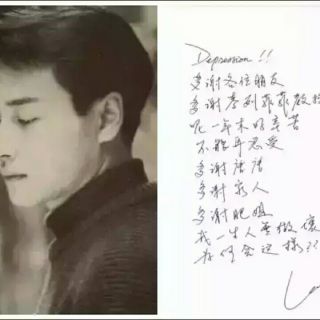 Depression!!
多谢各位朋友
多谢麥列菲菲教
呢一年来好辛苦
不能再忍受
多谢唐唐
多谢家人
多谢肥姐
我一生人無做壞
为何会这样??